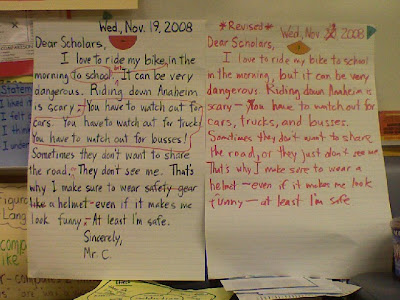 Wed, Nov. 19, 2008
Dear Scholars,
I love to ride my bike, in the
morning to school. but It can be very
dangerous. Riding down Anaheim
is scary. – You have to watch out for
cars. You have to watch out for truck
You have to watch out for busses!
Sometimes they don't want to share
the road. They don't see me. That's
why I make sure to wear safety gear
like a helmet – even if it makes me
look funny. – At least I'm safe.
Sincerely,
Mr. C.
*Revised* Wed, Nov 2008
Dear Scholars,
I love to ride my bike to school
in the morning, but it can be very
dangerous. Riding down Anaheim is
scary – You have to watch out for
cars, trucks, and busses.
Sometimes they don't want to share
the road, or they just don't see me.
That's why I make sure to wear a
helmet – even if it makes me look
funny – at least I'm safe
Statemen
I liked
I felt
I think
I under
Figura
Lang
compa
like